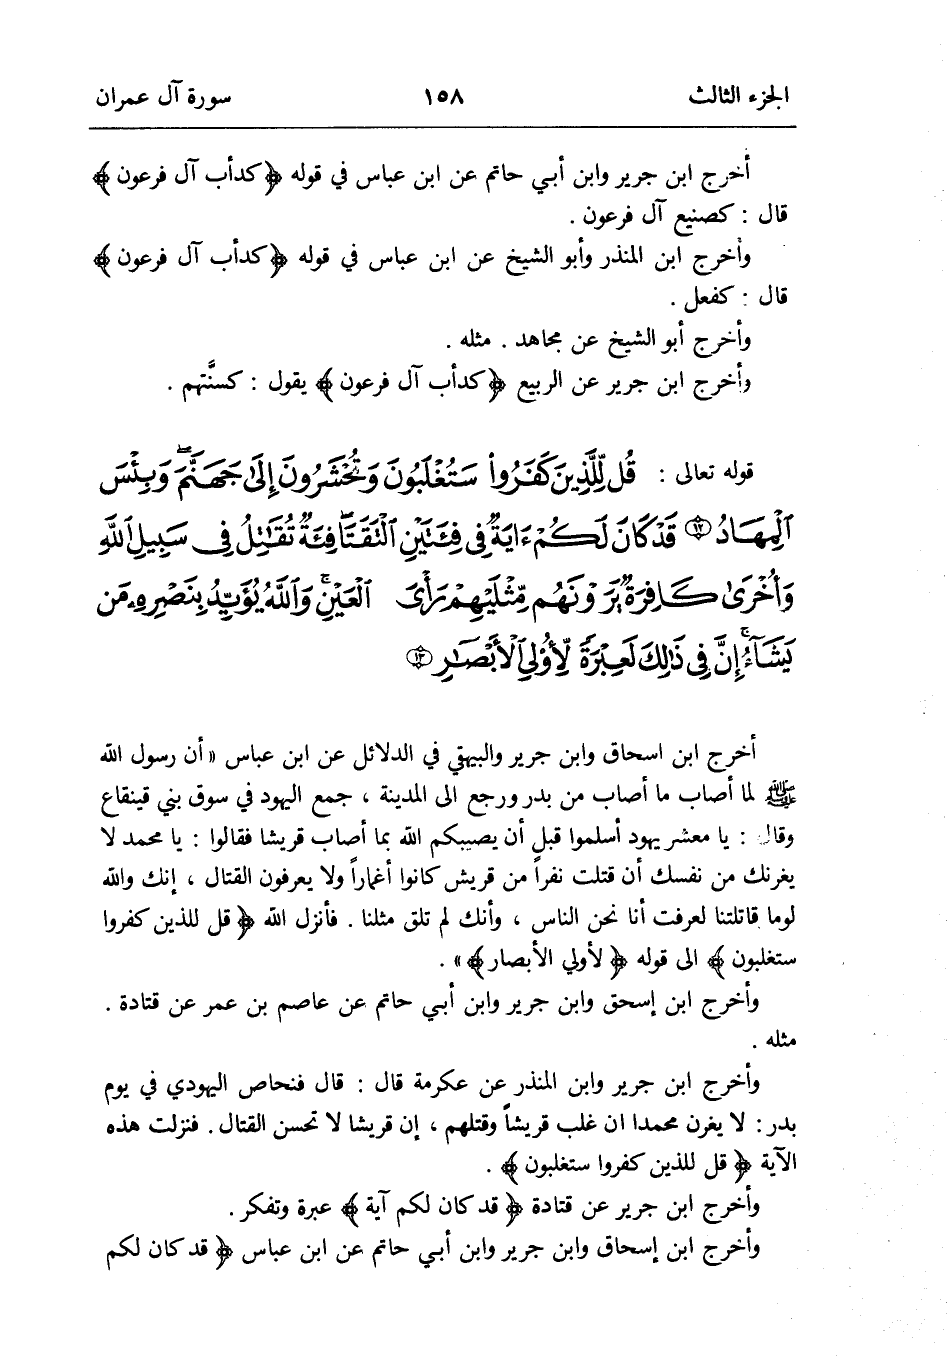 الجزء الثالث ١٥٨ سورة آل عمران
أخرج ابن جرير وابن أبي حاتم عن ابن عباس في قوله ﴿كدأب آل فرعون﴾
قال : كصنيع آل فرعون .
وأخرج ابن المنذر وأبو الشيخ عن ابن عباس في قوله ﴿كدأب آل فرعون﴾
قال : كفعل .
وأخرج أبو الشيخ عن مجاهد . مثله .
وأخرج ابن جرير عن الربيع ﴿كدأب آل فرعون﴾ يقول : كسنَّتهم .
قوله تعالى : قُل لِّلَّذِينَ كَفَرُوا۟ سَتُغْلَبُونَ وَتُحْشَرُونَ إِلَىٰ جَهَنَّمَ ۖ وَبِئْسَ
ٱلْمِهَادُ ۝١٢ قَدْ كَانَ لَكُمْ ءَايَةٌ فِى فِئَتَيْنِ ٱلْتَقَتَا ۖ فِئَةٌ تُقَٰتِلُ فِى سَبِيلِ ٱللَّهِ
وَأُخْرَىٰ كَافِرَةٌ يَرَوْنَهُم مِّثْلَيْهِمْ رَأْىَ ٱلْعَيْنِ ۚ وَٱللَّهُ يُؤَيِّدُ بِنَصْرِهِۦ مَن
يَشَآءُ ۚ إِنَّ فِى ذَٰلِكَ لَعِبْرَةً لِّأُو۟لِى ٱلْأَبْصَٰرِ ۝١٣
أخرج ابن اسحاق وابن جرير والبيهقي في الدلائل عن ابن عباس «أن رسول الله
ﷺ لما أصاب ما أصاب من بدر ورجع الى المدينة ، جمع اليهود في سوق بني قينقاع
وقال : يا معشر يهود أسلموا قبل أن يصيبكم الله بما أصاب قريشا فقالوا : يا محمد لا
يغرنك من نفسك أن قتلت نفراً من قريش كانوا أغماراً ولا يعرفون القتال ، إنك والله
لوما قاتلتنا لعرفت أنا نحن الناس ، وأنك لم تلق مثلنا . فأنزل الله ﴿قل للذين كفروا
ستغلبون﴾ الى قوله ﴿لأولي الأبصار﴾» .
وأخرج ابن إسحق وابن جرير وابن أبي حاتم عن عاصم بن عمر عن قتادة .
مثله .
وأخرج ابن جرير وابن المنذر عن عكرمة قال : قال فنحاص اليهودي في يوم
بدر : لا يغرن محمدا ان غلب قريشاً وقتلهم ، إن قريشا لا تحسن القتال . فنزلت هذه
الآية ﴿قل للذين كفروا ستغلبون﴾ .
وأخرج ابن جرير عن قتادة ﴿قد كان لكم آية﴾ عبرة وتفكر .
وأخرج ابن إسحاق وابن جرير وابن أبي حاتم عن ابن عباس ﴿قد كان لكم